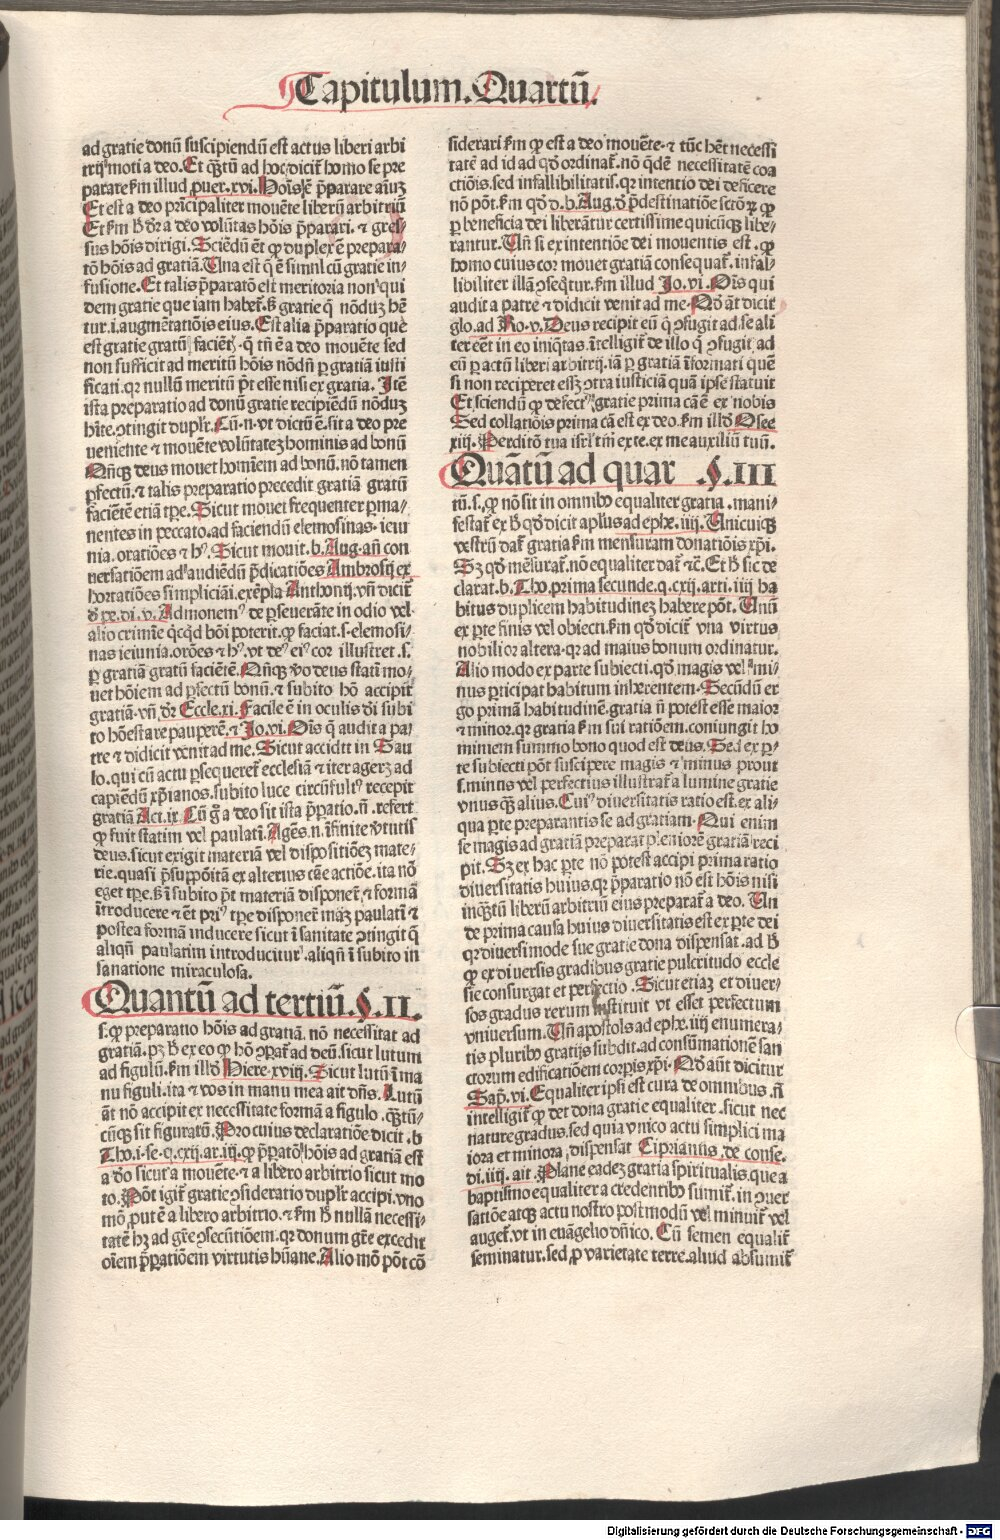 Capitulum. Quartū.
ad gratie donū suscipiendū est actus liberi arbi
trij moti a deo. Et q̄ȝtū ad hoc dicit̄ homo se pre
parare ẜm illud puer. xvi. Hoīs ē p̄parare aīuȝ
Et est a deo prīcipaliter mouēte liberū arbitriū
Et ẜm ħ dr̄ a deo volūtas hōis p̄parari. ⁊ gres⸗
sus hōis dirigi. Sciēdū ēt ꝙ duplex ē prepara⸗
tō hōis ad gratiā. Una est q̄ ē simul cū gratie in⸗
fusione. Et talis p̄paratō est meritoria non qui
dem gratie que iam habet̄. ẜ gratie q̄ nōduȝ hē
tur. i. augmētatiōis eius. Est alia p̄paratio que
est gratie gratū faciēt̄. q̄ tn̄ ē a deo mouēte sed
non sufficit ad meritū hōis nōdū p gratiā iusti
ficati. qꝛ nullū meritū pt̄ esse nisi ex gratia. Itē
ista preparatio ad donū gratie recipiēdū nōduȝ
hīte. ꝯtingit duplr̄. Cū. n. vt dictū ē. sit a deo pre
ueniente ⁊ mouēte volūtateȝ hominis ad bonū
Qn̄qȝ deus mouet homīem ad bonū. nō tamen
ꝑfectū. ⁊ talis preparatio precedit gratiā gratū
faciētē etiā tꝑe. Sicut mouet frequenter ꝑma⸗
nentes in peccato. ad faciendū elemosinas. ieiu
nia. oratiōes ⁊ hꝰ. Sicut mouit. b. Aug. an̄ con
uersatiōem ad audiēdū p̄dicatiōes Ambrosij ex
hortatiōes simpliciāi. exēpla Anthonij. vn̄ dicit̄
d̄ pe. di. v. Admonemꝰ de ꝑseuerāte in odio vel
alio crimīe q̄cqd hōi poterit. ꝙ faciat. s. elemosi⸗
nas ieiunia. orōes ⁊ hꝰ. vt deꝰ eiꝰ cor illustret. s.
ꝑ gratiā gratū faciētē. Qn̄qȝ v̄o deus statī mo⸗
uet hōiem ad ꝑfectū bonū. ⁊ subito hō accipit
gratiā. vn̄ dr̄ Eccle. xi. Facile ē in oculis dei subi
to hōestare pauperē. ⁊ Jo. vi. Oīs q̄ audit a pa⸗
tre ⁊ didicit venit ad me. Sicut accidit in Sau
lo. qui cū actu ꝑsequeret̄ ecclesiā ⁊ iter ageret̄ ad
capiēdū xp̄ianos. subito luce circūfultꝰ recepit
gratiā Act. ix. Cū ḡ a deo sit ista p̄patio. n̄. refert
ꝙ fuit statim vel paulatī. Agēs. n. īfinite v̄tutis
deus. sicut exigit materiā vel dispositiōeȝ mate⸗
rie. quasi p̄suppōitā ex alterius cāe actiōe. ita nō
eget tꝑe. ẜ ī subito pt̄ materiā disponer̄. ⁊ formā
ītroducere ⁊ ēt priꝰ tꝑe disponer̄ māȝ paulatī ⁊
postea formā inducere sicut ī sanitate ꝯtingit q̄
aliqn̄ paulatim introducitur. aliqn̄ ī subito in
sanatione miraculosa.
Quantū ad tertiū. §. II.
s. ꝙ preparatio hōis ad gratiā. nō necessitat ad
gratiā. pȝ ħ ex eo ꝙ hō ꝯpat̄ ad deū. sicut lutum
ad figulū. ẜm illd̄ Hiere. xviij. Sicut lutū ī ma
nu figuli. ita ⁊ vos in manu mea ait dn̄s. Lutū
āt nō accipit ex necessitate formā a figulo. q̄ȝtū⸗
cūqȝ sit figuratū. Pro cuius declaratiōe dicit. b
Tho. i. se. q. cxij. ar. iij. ꝙ p̄patō hōis ad gratiā est
a do sicut a mouēte. ⁊ a libero arbitrio sicut mo
to. Pōt igit̄ gratie ꝯsideratio duplr̄ accipi. vno
mō put ē a libero arbitrio. ⁊ ẜm ħ nullā necessi⸗
tatē hȝ ad gr̄e ꝯsecutiōem. qꝛ donum gr̄e excedit
oīem p̄patiōem virtutis hūane. Alio mō pōt cō
siderari ẜm ꝙ est a deo mouēte. ⁊ tūc hēt necessi
tatē ad id ad qd̄ ordinat̄. nō q̄dē necessitatē coa
ctiōis. sed infallibilitatis. qꝛ intentio dei deficere
nō pōt. ẜm qd̄ d. b. Aug. d̄ p̄destinatiōe sctōꝝ ꝙ
ꝑ beneficia dei liberātur certissime quicūqȝ libe⸗
rantur. Un̄ si ex intentiōe dei mouentis est. ꝙ
homo cuius cor mouet gratiā consequat̄. infal⸗
libiliter illā ꝯseq̄tur. ẜm illud Jo. vi. Oīs qui
audit a patre ⁊ didicit venit ad me. Qd̄ āt dicit
glo. ad Ro. v. Deus recipit eū q̄ ꝯfugit ad se ali
ter eēt in eo iniq̄tas. ītelligit̄ de illo q̄ ꝯfugit ad
eū ꝑ actū liberi arbitrij. iā ꝑ gratiā īformati quē
si non reciperet esset ꝯtra iusticiā quā ipse statuit
Et sciendū ꝙ defectꝰ gratie prima cā ē ex nobis
Sed collatiōis prima cā est ex deo. ẜm illd̄ Osee
xiij. Perditō tua isrl̄ tm̄ ex te. ex me auxiliū tuū.
Quātū ad quar §. III
tū. s. ꝙ nō sit in omnibꝰ equaliter gratia. mani⸗
festat̄ ex ħ qd̄ dicit aplus ad ephe. iiij. Unicuiqȝ
vestrū dat̄ gratia ẜm mensuram donatiōis xp̄i.
Sȝ qd̄ mēsurat̄. nō equaliter dat̄ ⁊c̄. Et ħ sic de
clarat. b. Tho. prima secunde. q. cxij. arti. iiij ha
bitus duplicem habitudineȝ habere pōt. Unū
ex ꝑte finis vel obiecti. ẜm qd̄ dicit̄ vna virtus
nobilior altera. qꝛ ad maius bonum ordinatur.
Alio modo ex parte subiecti. qd̄ magis vel mi⸗
nus ꝑticipat habitum inherentem. Secūdū er
go primā habitudinē. gratia n̄ potest esse maior
⁊ minor. qꝛ gratia ẜm sui ratiōem. coniungit ho
minem summo bono quod est deus. Sed ex ꝑ⸗
te subiecti pōt suscipere magis ⁊ minus prout
s. minus vel perfectius illustrat̄ a lumine gratie
vnus q̄ȝ alius. Cuiꝰ diuersitatis ratio est. ex ali⸗
qua ꝑte preparantis se ad gratiam. Qui enim
se magis ad gratiā preparat pleniore gratiā reci
pit. Sȝ ex hac ꝑte nō potest accipi prima ratio
diuersitatis huius. qꝛ p̄paratio nō est hōis nisi
inq̄ȝtū liberū arbitriū eius preparat̄ a deo. Un̄
de prima causa huius diuersitatis est ex ꝑte dei
qꝛ diuersimode sue gratie dona dispensat. ad ħ
ꝙ ex diuersis gradibus gratie pulcritudo eccle
sie consurgat et perfectio. Sicut etiaȝ et diuer⸗
sos gradus rerum instituit vt esset perfectum
vniuersum. Un̄ apostols ad ephe. iiij enumera⸗
tis pluribꝰ gratijs subdit. ad consūmationē san
ctorum edificatiōem corpis xp̄i. Qd̄ aūt dicitur
Sap. vi. Equaliter ipsi est cura de omnibus. n̄
intelligit̄ ꝙ det dona gratie equaliter. sicut nec
nature gradus. sed quia vnico actu simplici ma
iora et minora dispensat Ciprianus. de conse.
di. iiij. ait. Plane eadeȝ gratia spiritualis. que a
baptismo equaliter a credentibꝰ sumit̄. in ꝯuer
satiōe atqȝ actu nostro postmodū vel minuit̄ vel
auget̄. vt in euāgelio dn̄ico. Cū semen equalit̄
seminatur. sed p varietate terre. aliud absumit̄
Digitalisierung gefördert durch die Deutsche Forschungsgemeinschaft - DFG